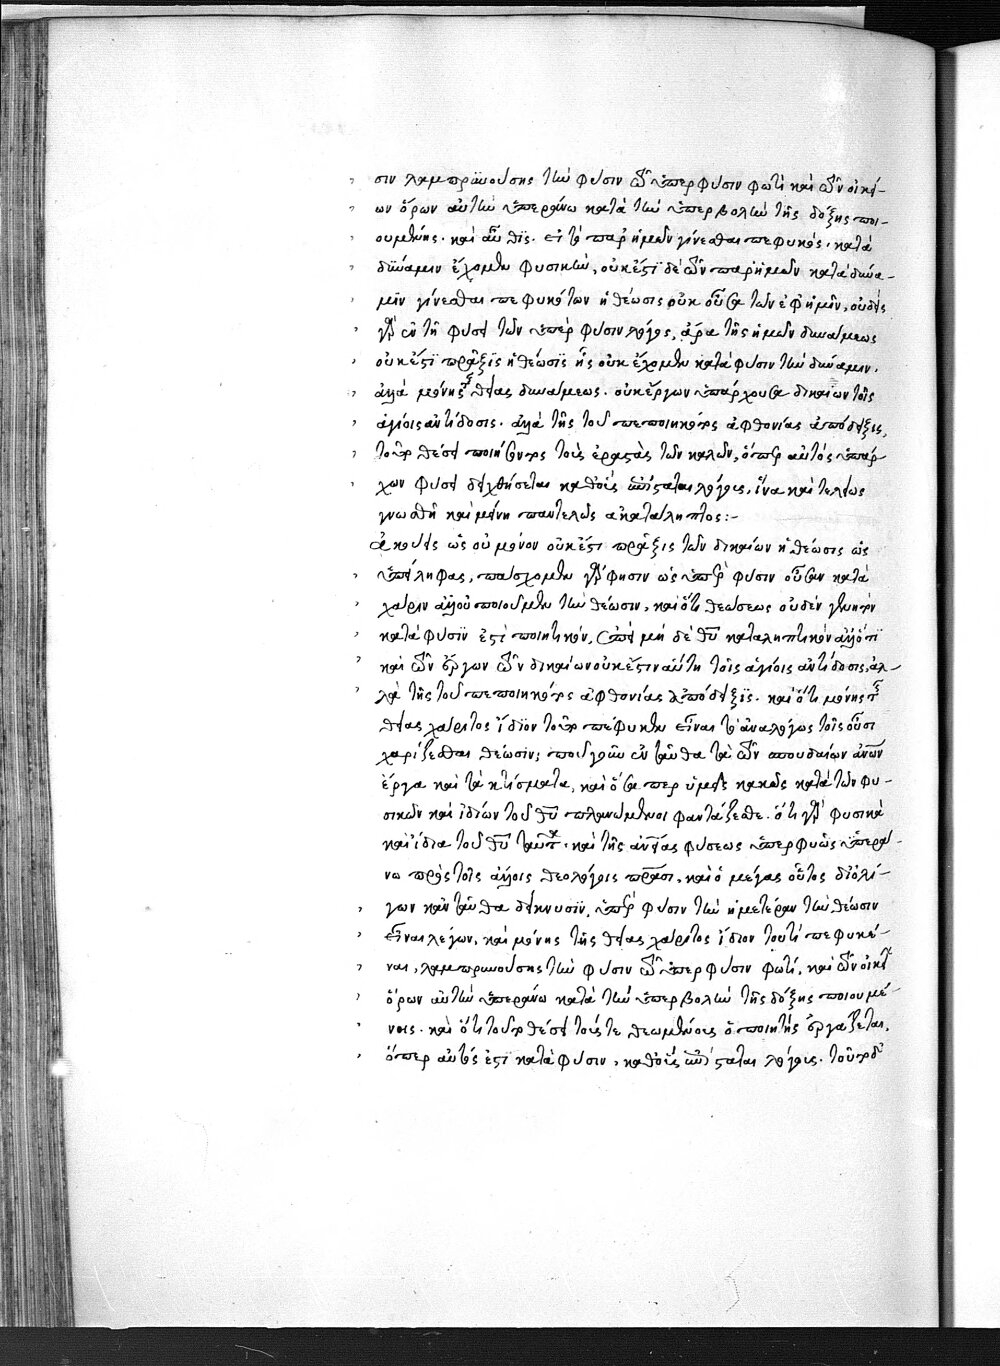 σιν λαμπρϋνούσης τὴν φύσιν τῶ ὑπερ φύσιν φωτὶ καὶ τῶν οἰκεί-
ων ὅρων αὐτὴν ὑπεράνω κατὰ τὴν ὑπερβολὴν τῆς δόξης ποι-
ουμένης· καὶ αὖ θϊς· εἰ τὸ παρ ἡμῶν γίνεσθαι πεφυκὸς, κατὰ
δύναμιν ἔχομεν φυσικὴν, οὐκέστϊ δὲ τῶν παρ ἡμῶν κατὰ δύνα-
μϊν γίνεσθαι πεφυκότων ἡ θέωσις οὐκ οὖσα τῶν ἐφ ἡμῖν, οὐδεὶς
γὰρ ἐν τῆ φύσει τῶν ὑπὲρ φύσιν λόγος, ἄρα τῆς ἡμῶν δυνάμεως
οὐκέστϊ πρᾶξϊς ἡ θέωσϊς ἧς οὐκ ἔχομεν κατὰ φύσιν τὴν δύναμιν.
ἀλλὰ μόνης τῆς θείας δυνάμεως· οὐκ ἔργων ὑπάρχουσα δικαίων τοῖς
ἁγίοις ἀντίδοσις· ἀλλὰ τῆς τοῦ πεποιηκότος ἀφθονίας ἀπόδειξις,
τοῦτο θέσει ποιήσοντος τοὺς ἐραστὰς τῶν καλῶν, ὅπερ αὐτὸς ὑπάρ-
χων φύσει δειχθήσεται καθοὓς ἐπίσταται λόγοις, ἵνα καὶ τελείως
γνωσθῆ καὶ μείνη παντελῶς ἀκατάληπτος:-
Ἀκούεις ὡς οὐ μόνον οὐκέστι πρᾶξις τῶν δικαίων ἡ θέωσις ὡς
ὑπείληφας, πάσχομεν γάρ φησιν ὡς ὑπὲρ φύσιν οὖσαν κατὰ
χάριν ἀλλ οὐ ποιοῦμεν τὴν θέωσιν, καὶ ὅτι θεώσεως οὐδὲν γενητὸν
κατὰ φύσϊν ἐστὶ ποιητικὸν, ἐπεὶ μὴ δὲ θῦ καταληπτικὸν ἀλλ ὅτϊ
καὶ τῶν ἔργων τῶν δικαίων οὐκέστιν αὕτη τοῖς ἁγίοις ἀντίδοσις, ἀλ-
λὰ τῆς τοῦ πεποιηκότος ἀφθονίας ἀπόδειξϊς· καὶ ὅτι μόνης τῆς
θείας χάριτος ἴδϊον τοῦτο πέφυκεν εἶναι τὸ ἀναλόγως τοῖς οὖσι
χαρίζεσθαι θέωσιν; ποῦ γοῦν ἐν ταῦθα τὰ τῶν σπουδαίων ἀνῶν
ἔργα καὶ τὰ κτίσματα, καὶ ὅσα περ ὑμεῖς κακῶς κατὰ τῶν φυ-
σικῶν καὶ ἰδίων τοῦ θῦ πλανώμενοι φαντάζεσθε· ὅτι γὰρ φυσικὰ
καὶ ἴδια τοῦ θῦ ταῦτ· καὶ τῆς φύσεως ὑπερφυῶς ὑπερά-
νω πρὸς τοῖς ἄλλοις θεολόγοις πᾶσι, καὶ ὁ μέγας οὗτος δϊολί-
γων κἀνταῦθα δείκνυσϊν, ὑπὲρ φύσιν τὴν ἡμετέραν τὴν θέωσιν
εἶναι λέγων, καὶ μόνης τῆς θείας χάριτος ἴδιον τουτὶ πεφυκέ-
ναι, λαμπρυνούσης τὴν φύσιν τῶ ὑπερ φύσιν φωτί, καὶ τῶν οἰκείων
ὅρων αὐτὴν ὑπεράνω κατὰ τὴν ὑπερβολὴν τῆς δόξης ποιουμέ-
νης· καὶ ὅτι τοῦτο θέσει τούς τε θεωμένους ὁ ποιητὴς ἐργάζεται,
ὅπερ αὐτός ἐστϊ κατὰ φύσιν, καθοὓς ἐπίσταται λόγοις. τοῦτο δ